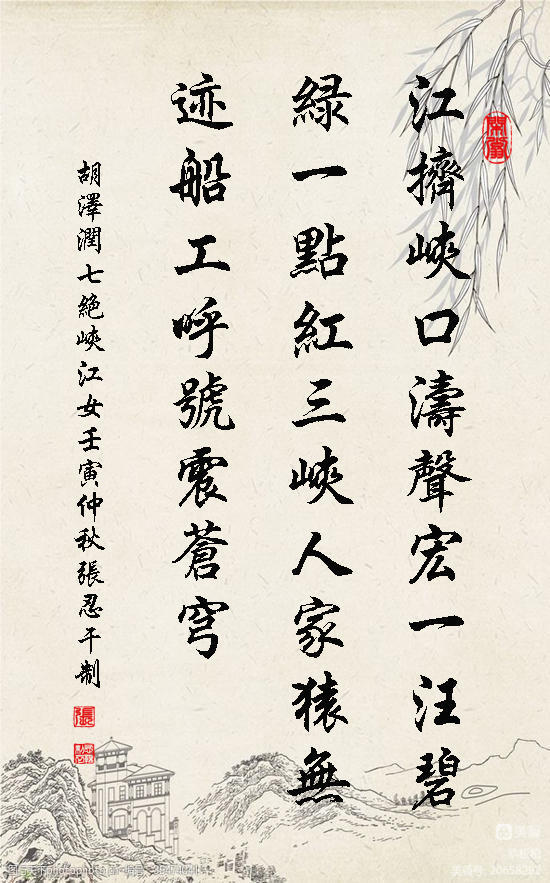 江擠峽口濤聲宏一汪碧
綠一點紅三峽人家猿無
迹船工呼號震蒼穹
胡澤潤七絕峽江女壬寅仲秋張忍干制
張